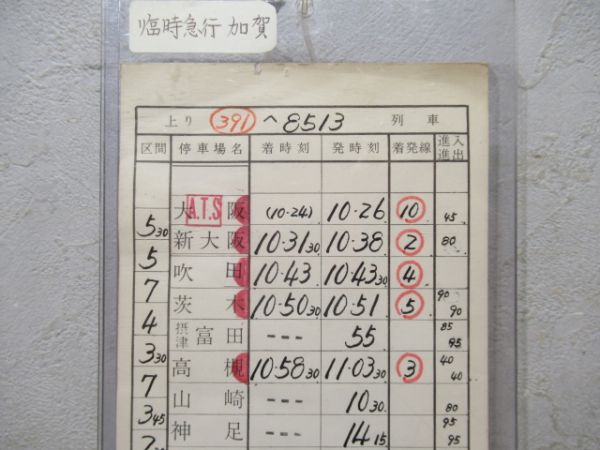 臨時急行 加賀
上り 391 へ8513 列車
区間 停車場名 着時刻 発時刻 着発線 進入進出
大阪 A.T.S (10·24) 10·26 10 45
5 30
新大阪 10·31 30 10·38 2 80
5
吹田 10·43 10·43 30 4
7
茨木 10·50 30 10·51 5 90 90
4
摂津富田 --- 55 85 95
3 30
高槻 10·58 30 11·03 30 3 40 40
7
山崎 --- 10 30 80
3 45
神足 --- 14 15 95 95